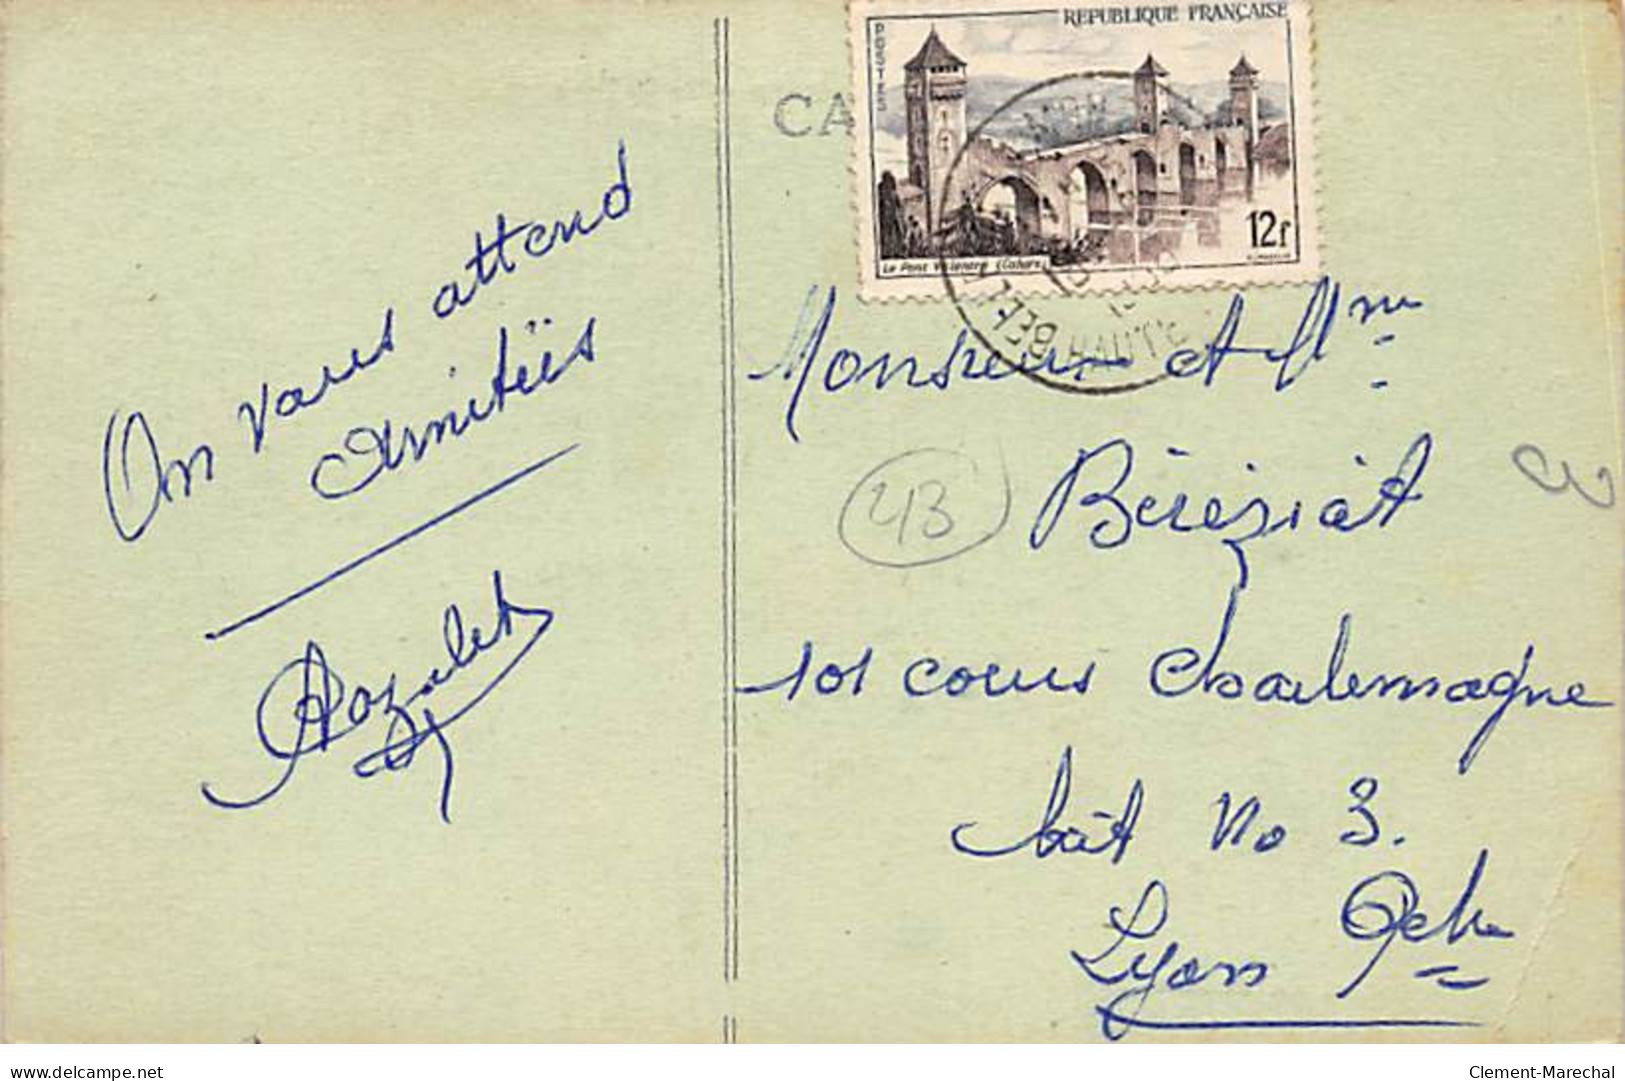 On vous attend
Amitiés
CA
REPUBLIQUE FRANÇAISE
POSTES
12f
Le Pont Valentré (Cahors)
Monsieur et Mme
Béréziat
43
101 cours Charlemagne
bât No 3.
Lyon
delcampe.net
Clement-Marechal